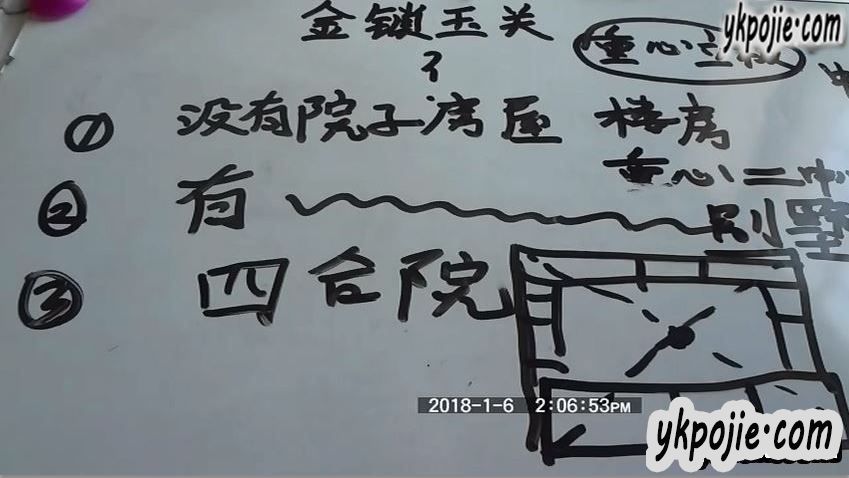 ykpojie.com
金锁玉关
重心立极
① 没有院子房屋 楼房
重心二中
② 有 别墅
③ 四合院
2018-1-6 2:06:53PM
ykpojie.com